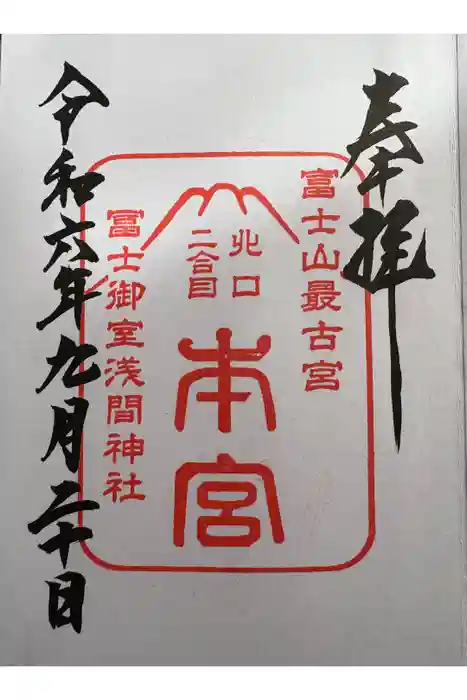 奉拝
富士山最古宮
北口
二合目
本宮
冨士御室浅間神社
令和六年九月二十日